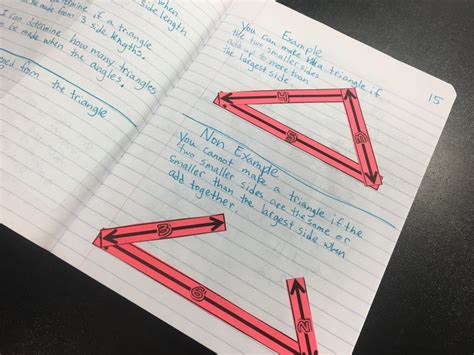 when
determine if a triangle
be made from 3 side length
side lengths.
I can determine how many triangles
be made when the angles.
from the triangle
15
Example
You can make a triangle if
the two smaller sides
add up to more than
the largest side.
4
3
5
Non Example
You cannot make a triangle if the
two smaller sides are the same or
smaller than the largest side when
add together.
3
6
2